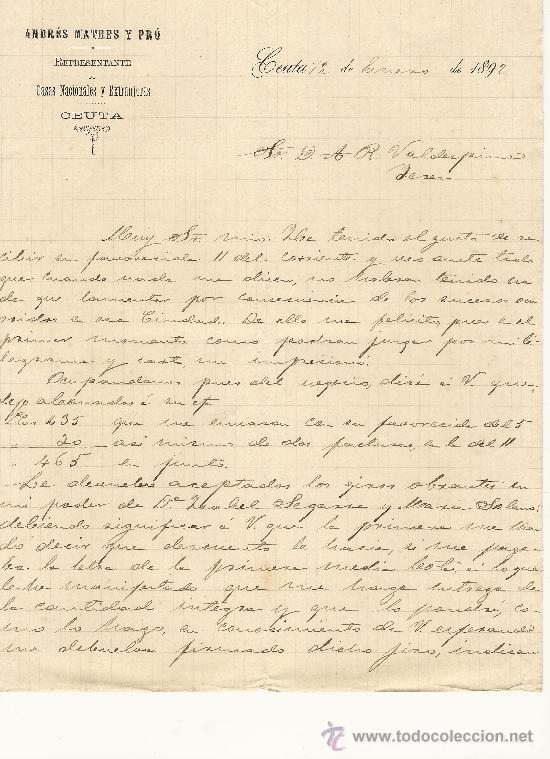 ANDRÉS MATRES Y PRÓ
REPRESENTANTE
DE
Casas Nacionales y Extranjeras
CEUTA
Ceuta 12 de Enero de 1892
Sr. D. A. R. Valdespino
Jerez
Muy Sr. mio: He tenido el gusto de re-
cibir su favorecida 11 del corriente y veo ante todo
que cuando nada me dicen, no habran tenido na
da que lamentar por consecuencia de los sucesos ocu
rridos en esa Ciudad. De ello me felicito, pues en el
primer momento como podran juzgar por mi te
legrama y carta, me impresionó.
Ocupandonos pues del negocio, diré á V. que
dejo abonados á su c/
Ptas 435 que me envian con su favorecida del 5
" 30 asi mismo de dos facturas, en la del 11
" 465 en junto
Le devuelvo aceptados los giros obrantes en
mi poder de Dª Isabel Segarra y Maria Solano
debiendo significar á V. que la primera me ha
do decir que descuento la hacia, si me paga-
ba la letra de la primera media á lo que
le he manifestado que me haga entrega de
la cantidad integra y que lo pondre, co-
mo lo hago, en conocimiento de V. esperando
me devuelva firmado dicho giro, indican
todocoleccion
www.todocoleccion.net